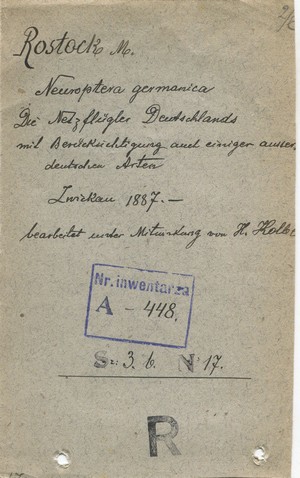 Rostock M.
Neuroptera germanica
Die Netzflügler Deutschlands
mit Berücksichtigung auch einiger ausser
deutschen Arten
Zwickau 1887. —
bearbeitet unter Mitwirkung von H. Kolbe
Nr. inwentarza
A - 448.
Sz: 3. b. N 17.
R